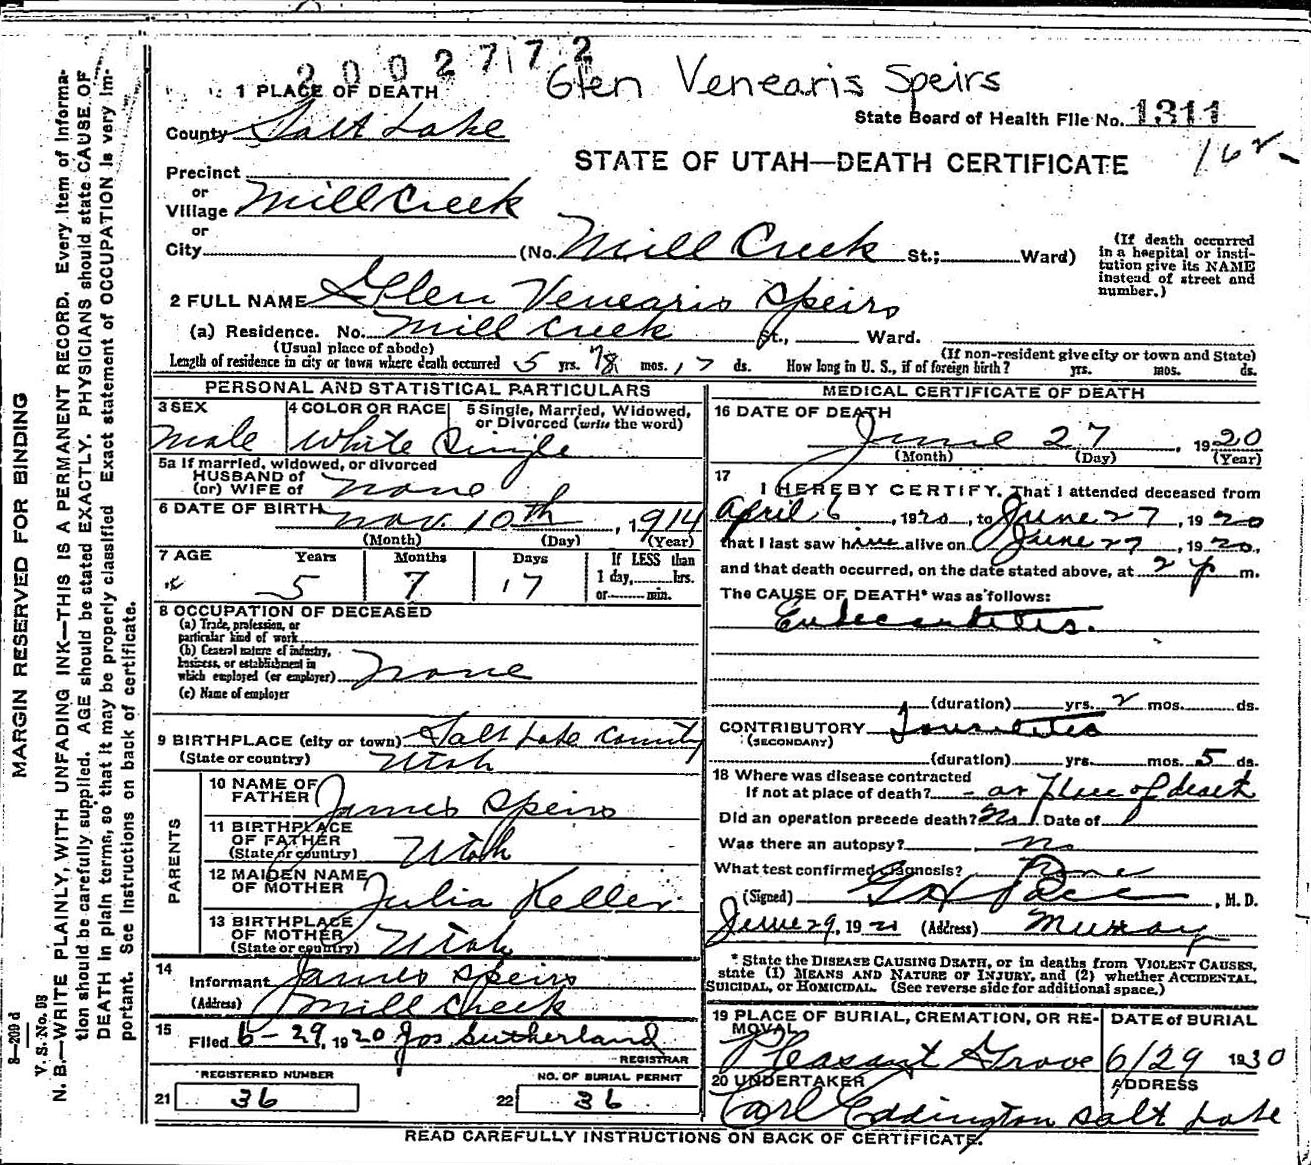 2002772
Glen Venearis Speirs
1 PLACE OF DEATH
State Board of Health File No. 1311
County Salt Lake
162
STATE OF UTAH—DEATH CERTIFICATE
Precinct
or
Village Mill Creek
or
City (No. Mill Creek St.; Ward)
(If death occurred in a hospital or institution give its NAME instead of street and number.)
2 FULL NAME Glen Venearis Speirs
(a) Residence. No. Mill Creek St., Ward.
(Usual place of abode) (If non-resident give city or town and State)
Length of residence in city or town where death occurred 5 yrs. mos. 17 ds. How long in U. S., if of foreign birth? yrs. mos. ds.
PERSONAL AND STATISTICAL PARTICULARS
3 SEX 4 COLOR OR RACE 5 Single, Married, Widowed, or Divorced (write the word)
Male White Single
5a If married, widowed, or divorced
HUSBAND of
(or) WIFE of none
6 DATE OF BIRTH Nov. 10th, 1914
(Month) (Day) (Year)
7 AGE Years Months Days If LESS than
1 day, hrs.
or min.
5 7 17
8 OCCUPATION OF DECEASED
(a) Trade, profession, or
particular kind of work
(b) General nature of industry,
business, or establishment in
which employed (or employer) none
(c) Name of employer
9 BIRTHPLACE (city or town) Salt Lake County
(State or country) Utah
PARENTS
10 NAME OF
FATHER James Speirs
11 BIRTHPLACE
OF FATHER
(State or country) Utah
12 MAIDEN NAME
OF MOTHER Julia Keller
13 BIRTHPLACE
OF MOTHER
(State or country) Utah
14
Informant James Speirs
(Address) Mill Creek
15
Filed 6-29, 1920 Jos. Sutherland
REGISTRAR
REGISTERED NUMBER NO. OF BURIAL PERMIT
21 36 22 36
MEDICAL CERTIFICATE OF DEATH
16 DATE OF DEATH
June 27, 1920
(Month) (Day) (Year)
17
I HEREBY CERTIFY, That I attended deceased from
April 6, 1920, to June 27, 1920
that I last saw him alive on June 27, 1920,
and that death occurred, on the date stated above, at 2 p m.
The CAUSE OF DEATH* was as follows:
Endocarditis.
(duration) yrs. 2 mos. ds.
CONTRIBUTORY Tonsilitis
(SECONDARY)
(duration) yrs. mos. 5 ds.
18 Where was disease contracted
If not at place of death? - at place of death
Did an operation precede death? No Date of
Was there an autopsy? no
What test confirmed diagnosis?
(Signed) , M. D.
June 29, 19 (Address) Murray
* State the DISEASE CAUSING DEATH, or in deaths from VIOLENT CAUSES,
state (1) MEANS AND NATURE OF INJURY, and (2) whether ACCIDENTAL,
SUICIDAL, or HOMICIDAL. (See reverse side for additional space.)
19 PLACE OF BURIAL, CREMATION, OR RE-
MOVAL DATE of BURIAL
Pleasant Grove 6/29 1930
20 UNDERTAKER ADDRESS
Carl Eddington Salt Lake
READ CAREFULLY INSTRUCTIONS ON BACK OF CERTIFICATE.
MARGIN RESERVED FOR BINDING
8—209 d
V. S. No. 98
N. B.—WRITE PLAINLY, WITH UNFADING INK—THIS IS A PERMANENT RECORD. Every Item of Informa-
tion should be carefully supplied. AGE should be stated EXACTLY. PHYSICIANS should state CAUSE OF
DEATH in plain terms, so that it may be properly classified Exact statement of OCCUPATION is very im-
portant. See Instructions on back of certificate.